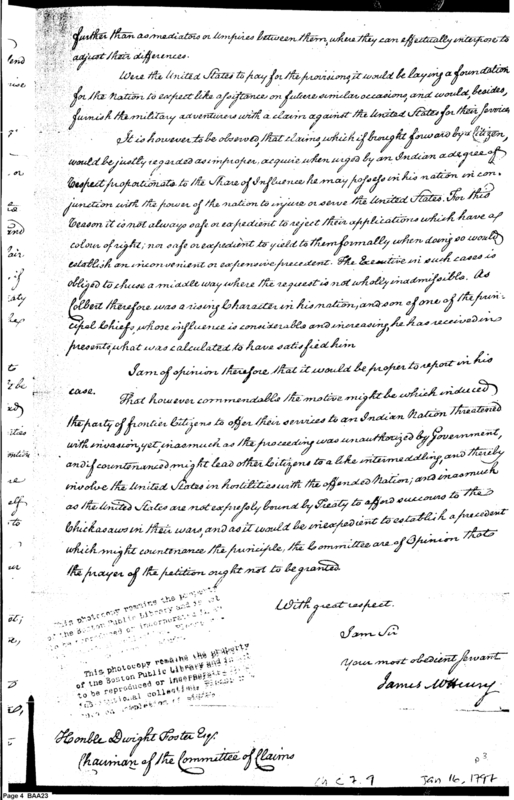 further than as mediators or umpires between them, where they can effectually interpose to
adjust their differences.
Were the United States to pay for the provisions, it would be laying a foundation
for the nation to expect like assistance on future similar occasions, and would, besides,
furnish the military adventurers with a claim against the United States for their services.
It is however to be observed, that claims, which if brought forward by a Citizen,
would be justly regarded as improper, acquire when urged by an Indian a degree of
respect proportionate to the share of Influence he may possess in his nation in con-
junction with the power of the nation to injure or serve the United States. For this
reason it is not always safe or expedient to reject their applications which have a
colour of right; nor safe or expedient to yield to them formally when doing so would
establish an inconvenient or expensive precedent. The Executive in such cases is
obliged to chuse a middle way where the request is not wholly inadmissible. As
Colbert therefore was a rising Character in his nation, and son of one of the prin-
cipal Chiefs, whose influence is considerable and increasing, he has received in
presents, what was calculated to have satisfied him
I am of opinion therefore that it would be proper to report in his
case.
That however commendable the motive might be which induced
the party of frontier Citizens to offer their services to an Indian Nation threatened
with invasion, yet, inasmuch as the proceeding was unauthorized by Government,
and if countenanced might lead other Citizens to a like intermeddling, and thereby
involve the United States in hostilities with the offended Nation; and inasmuch
as the United States are not expressly bound by Treaty to afford succours to the
Chickasaws in their wars, and as it would be inexpedient to establish a precedent
which might countenance the principle, the Committee are of Opinion that
the prayer of the petition ought not to be granted
With great respect.
I am Sir
Your most obedient servant
James McHenry
This photocopy remains the property
of the Boston Public Library and is
to be reproduced or incorporated
This photocopy remains the property
of the Boston Public Library and is
to be reproduced or incorporated
Honble Dwight Foster Esqr.
Chairman of the Committee of Claims
p3
Ch C 7. 9
Jan 16, 1797
Page 4 BAA23